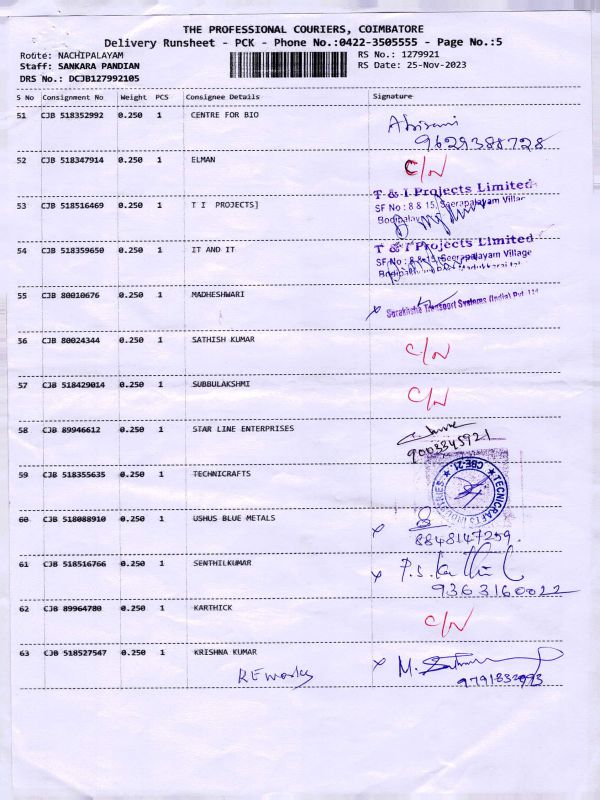 THE PROFESSIONAL COURIERS, COIMBATORE
Delivery Runsheet - PCK - Phone No.:0422-3505555 - Page No.:5
Route: NACHIPALAYAM RS No.: 1279921
Staff: SANKARA PANDIAN RS Date: 25-Nov-2023
DRS No.: DCJB127992105
S No Consignment No Weight PCS Consignee Details Signature
51 CJB 518352992 0.250 1 CENTRE FOR BIO
9629388728
52 CJB 518347914 0.250 1 ELMAN C/N
T & I Projects Limited
53 CJB 518516469 0.250 1 T I PROJECTS]
SF No : 8 & 15, Seerapalayam Village
T & I Projects Limited
54 CJB 518359650 0.250 1 IT AND IT
SF No : 8 & 15, Seerapalayam Village
55 CJB 80010676 0.250 1 MADHESHWARI
x Transport Systems (India) Pvt. Ltd
56 CJB 80024344 0.250 1 SATHISH KUMAR C/N
57 CJB 518429014 0.250 1 SUBBULAKSHMI C/N
58 CJB 89946612 0.250 1 STAR LINE ENTERPRISES
9003345921
59 CJB 518355635 0.250 1 TECHNICRAFTS
★ TECNICRAFTS INDUSTRIES ★ CBE-21.
60 CJB 518088910 0.250 1 USHUS BLUE METALS x
8848147259.
61 CJB 518516766 0.250 1 SENTHILKUMAR x P.S.
9363160022
62 CJB 89964780 0.250 1 KARTHICK C/N
63 CJB 518527547 0.250 1 KRISHNA KUMAR x M.
REworks 9791832993